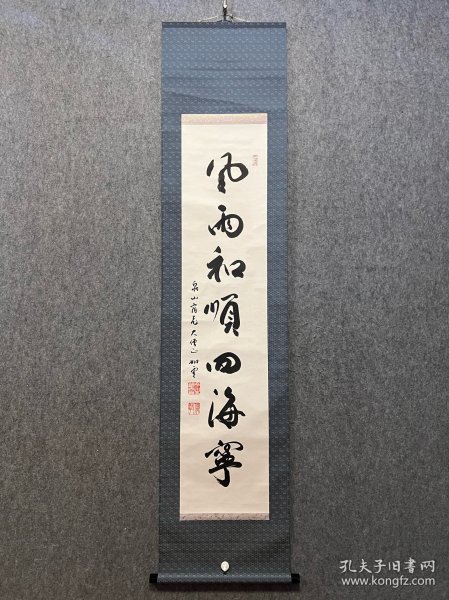 風雨和順四海寧
泉山脊克大僧正
孔夫子旧书网
www.kongfz.com